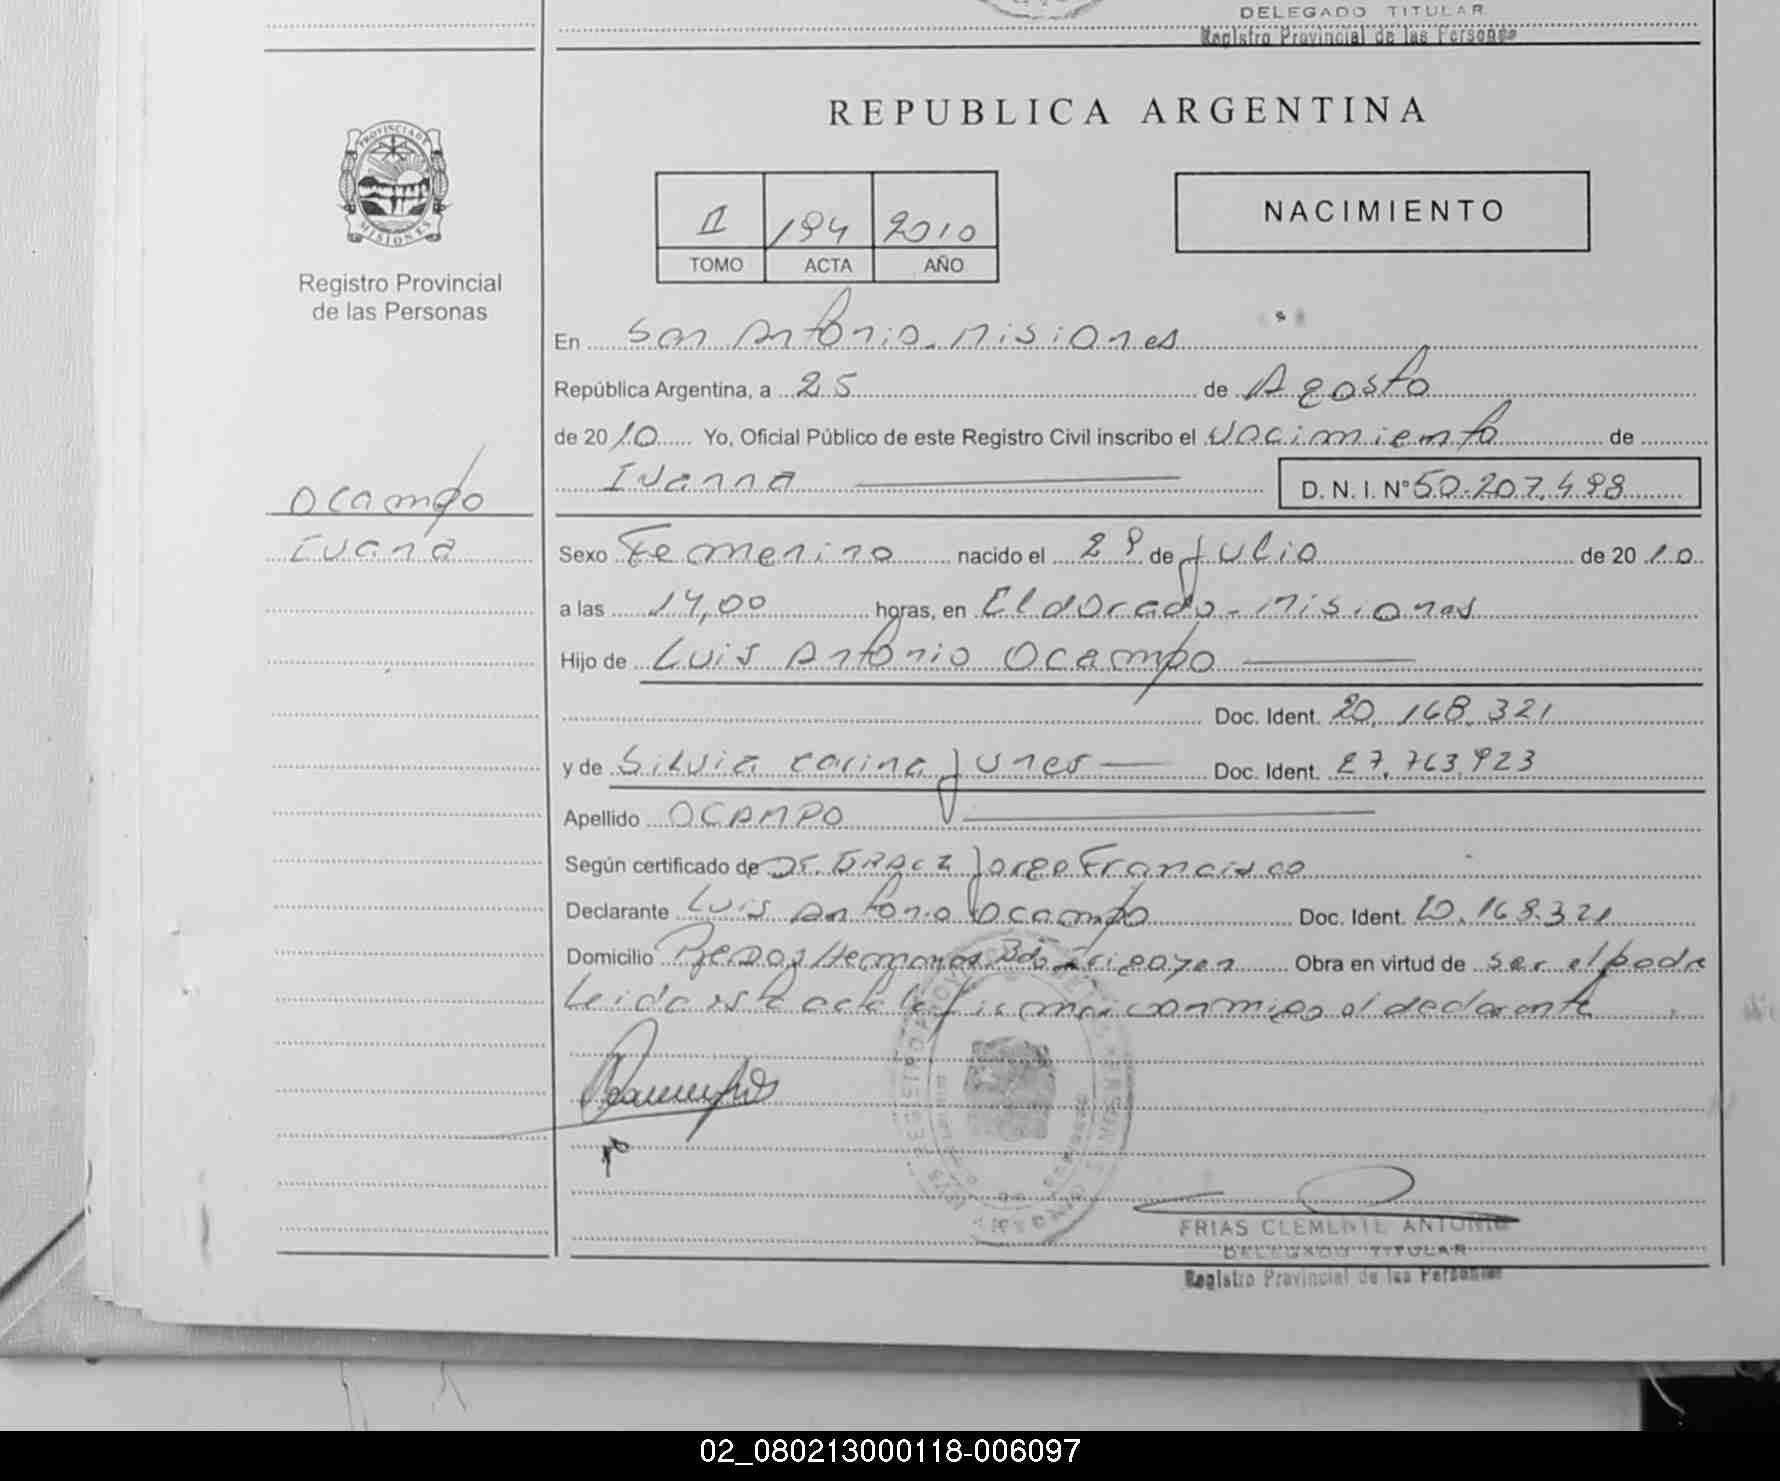 DELEGADO TITULAR
Registro Provincial de las Personas
REPUBLICA ARGENTINA
PROVINCIA DE
MISIONES
Registro Provincial
de las Personas
II 194 2010
TOMO ACTA AÑO
NACIMIENTO
En San Antonio. Misiones
República Argentina, a 25 de Agosto
de 2010 Yo, Oficial Público de este Registro Civil inscribo el Nacimiento de
Ivanna D. N. I. N° 50.207.498
Ocampo
Ivana
Sexo Femenino nacido el 29 de Julio de 2010
a las 14,00 horas, en Eldorado - Misiones
Hijo de Luis Antonio Ocampo
Doc. Ident. 20.168.321
y de Silvia Carina Junes Doc. Ident. 27.763.923
Apellido OCAMPO
Según certificado de Dr. Jorge Francisco
Declarante Luis Antonio Ocampo Doc. Ident. 20.168.321
Domicilio Hermanos Bdo Irigoyen Obra en virtud de ser el padre
Leida esta acta la firma conmigo el declarante
FRIAS CLEMENTE ANTONIO
DELEGADO TITULAR
Registro Provincial de las Personas
02_080213000118-006097